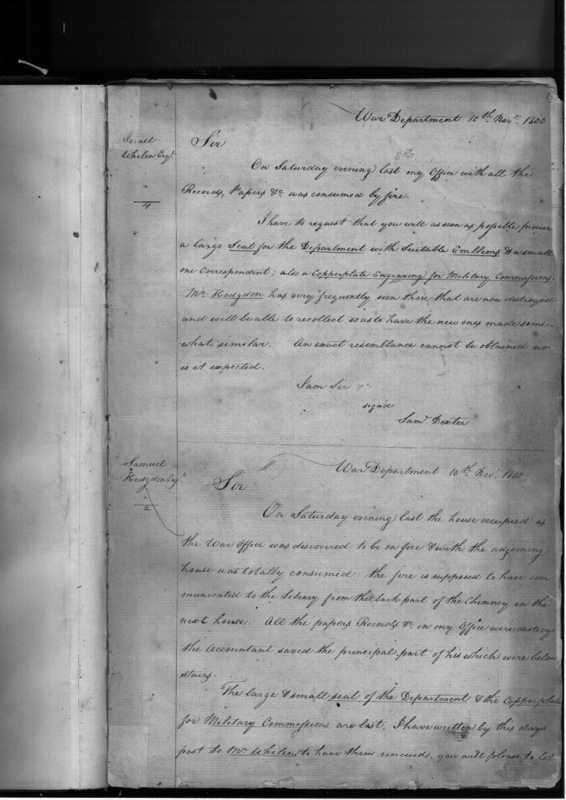 War Department 10th Novr. 1800
Israel
Whelen Esqr.
4
Sir
8th
On Saturday evening last my Office with all the
Records, Papers &c. was consumed by fire.
I have to request that you will as soon as possible procure
a large Seal for the Department with Suitable Emblems & a small
one Correspondent; also a Copperplate Engraving for Military Commissions.
Mr. Hodgdon has very frequently seen those that are now destroyed
and will be able to recollect so as to have the new ones made some-
what similar. An exact resemblance cannot be obtained nor
is it expected.
I am Sir &c
signed
Saml Dexter
Samuel
Hodgdon Esqr.
2
War Department 10th. Novr. 1800
Sir
On Saturday evening last the house occupied as
the War Office was discovered to be on fire & with the adjoining
house was totally consumed: the fire is supposed to have com
municated to the Library from the back part of the Chimney in the
next house. All the papers Records &c. in my Office were destroy
the Accountant saved the principal part of his which were below
stairs.
The large & small seal of the Department & the Copperplate
for Military Commissions are lost. I have written by this days
post to Mr Whelen to have them renewed, you will please to let